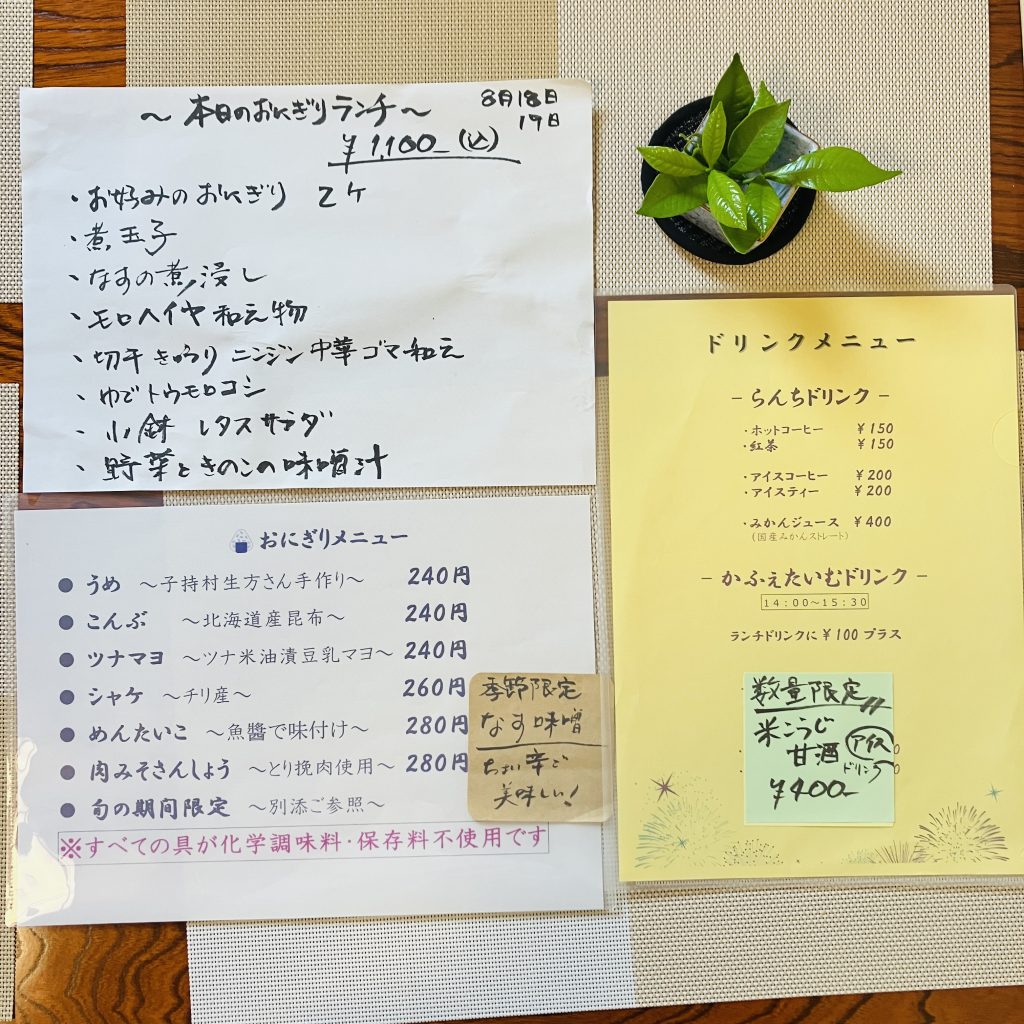 ～本日のおにぎりランチ～
8月18日
19日
¥1,100-(込)
・お好みのおにぎり 2ケ
・煮玉子
・なすの煮浸し
・モロヘイヤ和え物
・切干きゅうりニンジン中華ゴマ和え
・ゆでトウモロコシ
・小鉢 レタスサラダ
・野菜ときのこの味噌汁
おにぎりメニュー
● うめ ～子持村生方さん手作り～ 240円
● こんぶ ～北海道産昆布～ 240円
● ツナマヨ ～ツナ米油漬豆乳マヨ～ 240円
● シャケ ～チリ産～ 260円
● めんたいこ ～魚醬で味付け～ 280円
● 肉みそさんしょう ～とり挽肉使用～ 280円
● 旬の期間限定 ～別添ご参照～
※すべての具が化学調味料・保存料不使用です
季節限定
なす味噌
ちょい辛で
美味しい!
ドリンクメニュー
－らんちドリンク－
・ホットコーヒー ¥150
・紅茶 ¥150
・アイスコーヒー ¥200
・アイスティー ¥200
・みかんジュース ¥400
（国産みかんストレート）
－かふぇたいむドリンク－
14:00～15:30
ランチドリンクに¥100プラス
数量限定
米こうじ
甘酒 アイス
ドリンク
¥400-